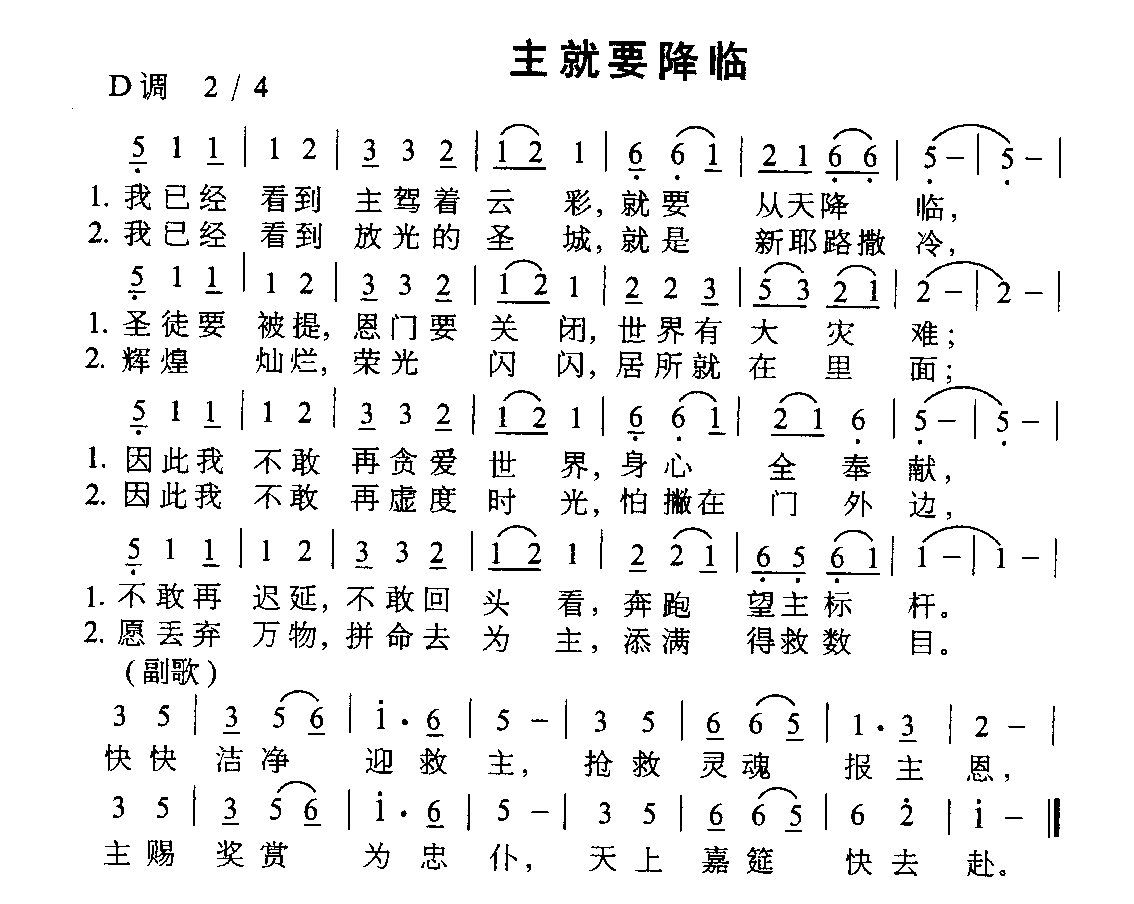 主就要降临
D调 2/4
5 1 1 | 1 2 | 3 3 2 | 1 2 1 | 6 6 1 | 2 1 6 6 | 5 – | 5 – |
1. 我已经 看到 主驾着 云 彩, 就要 从天降 临,
2. 我已经 看到 放光的 圣 城, 就是 新耶路撒 冷,
5 1 1 | 1 2 | 3 3 2 | 1 2 1 | 2 2 3 | 5 3 2 1 | 2 – | 2 – |
1. 圣徒要 被提, 恩门要 关 闭, 世界有 大 灾 难;
2. 辉煌 灿烂, 荣光 闪 闪, 居所就 在 里 面;
5 1 1 | 1 2 | 3 3 2 | 1 2 1 | 6 6 1 | 2 1 6 | 5 – | 5 – |
1. 因此我 不敢 再贪爱 世 界, 身心 全 奉 献,
2. 因此我 不敢 再虚度 时 光, 怕撇在 门 外 边,
5 1 1 | 1 2 | 3 3 2 | 1 2 1 | 2 2 1 | 6 5 6 1 | 1 – | 1 – |
1. 不敢再 迟延, 不敢回 头 看, 奔跑 望主标 杆。
2. 愿丢弃 万物, 拼命去 为 主, 添满 得救数 目。
(副歌)
3 5 | 3 5 6 | 1 · 6 | 5 – | 3 5 | 6 6 5 | 1 · 3 | 2 – |
快快 洁净 迎救 主, 抢救 灵魂 报主 恩,
3 5 | 3 5 6 | 1 · 6 | 5 – | 3 5 | 6 6 5 | 6 2 | 1 – ‖
主赐 奖赏 为忠 仆, 天上 嘉筵 快去 赴。